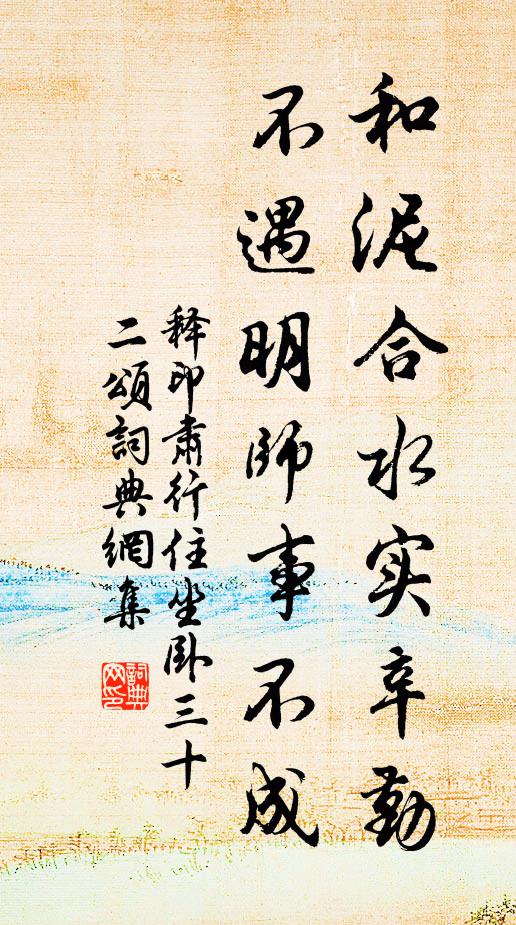 和泥合水实辛勤
不遇明师事不成
释印肃行住坐卧三十
二頌詞典網集
詞典
网印